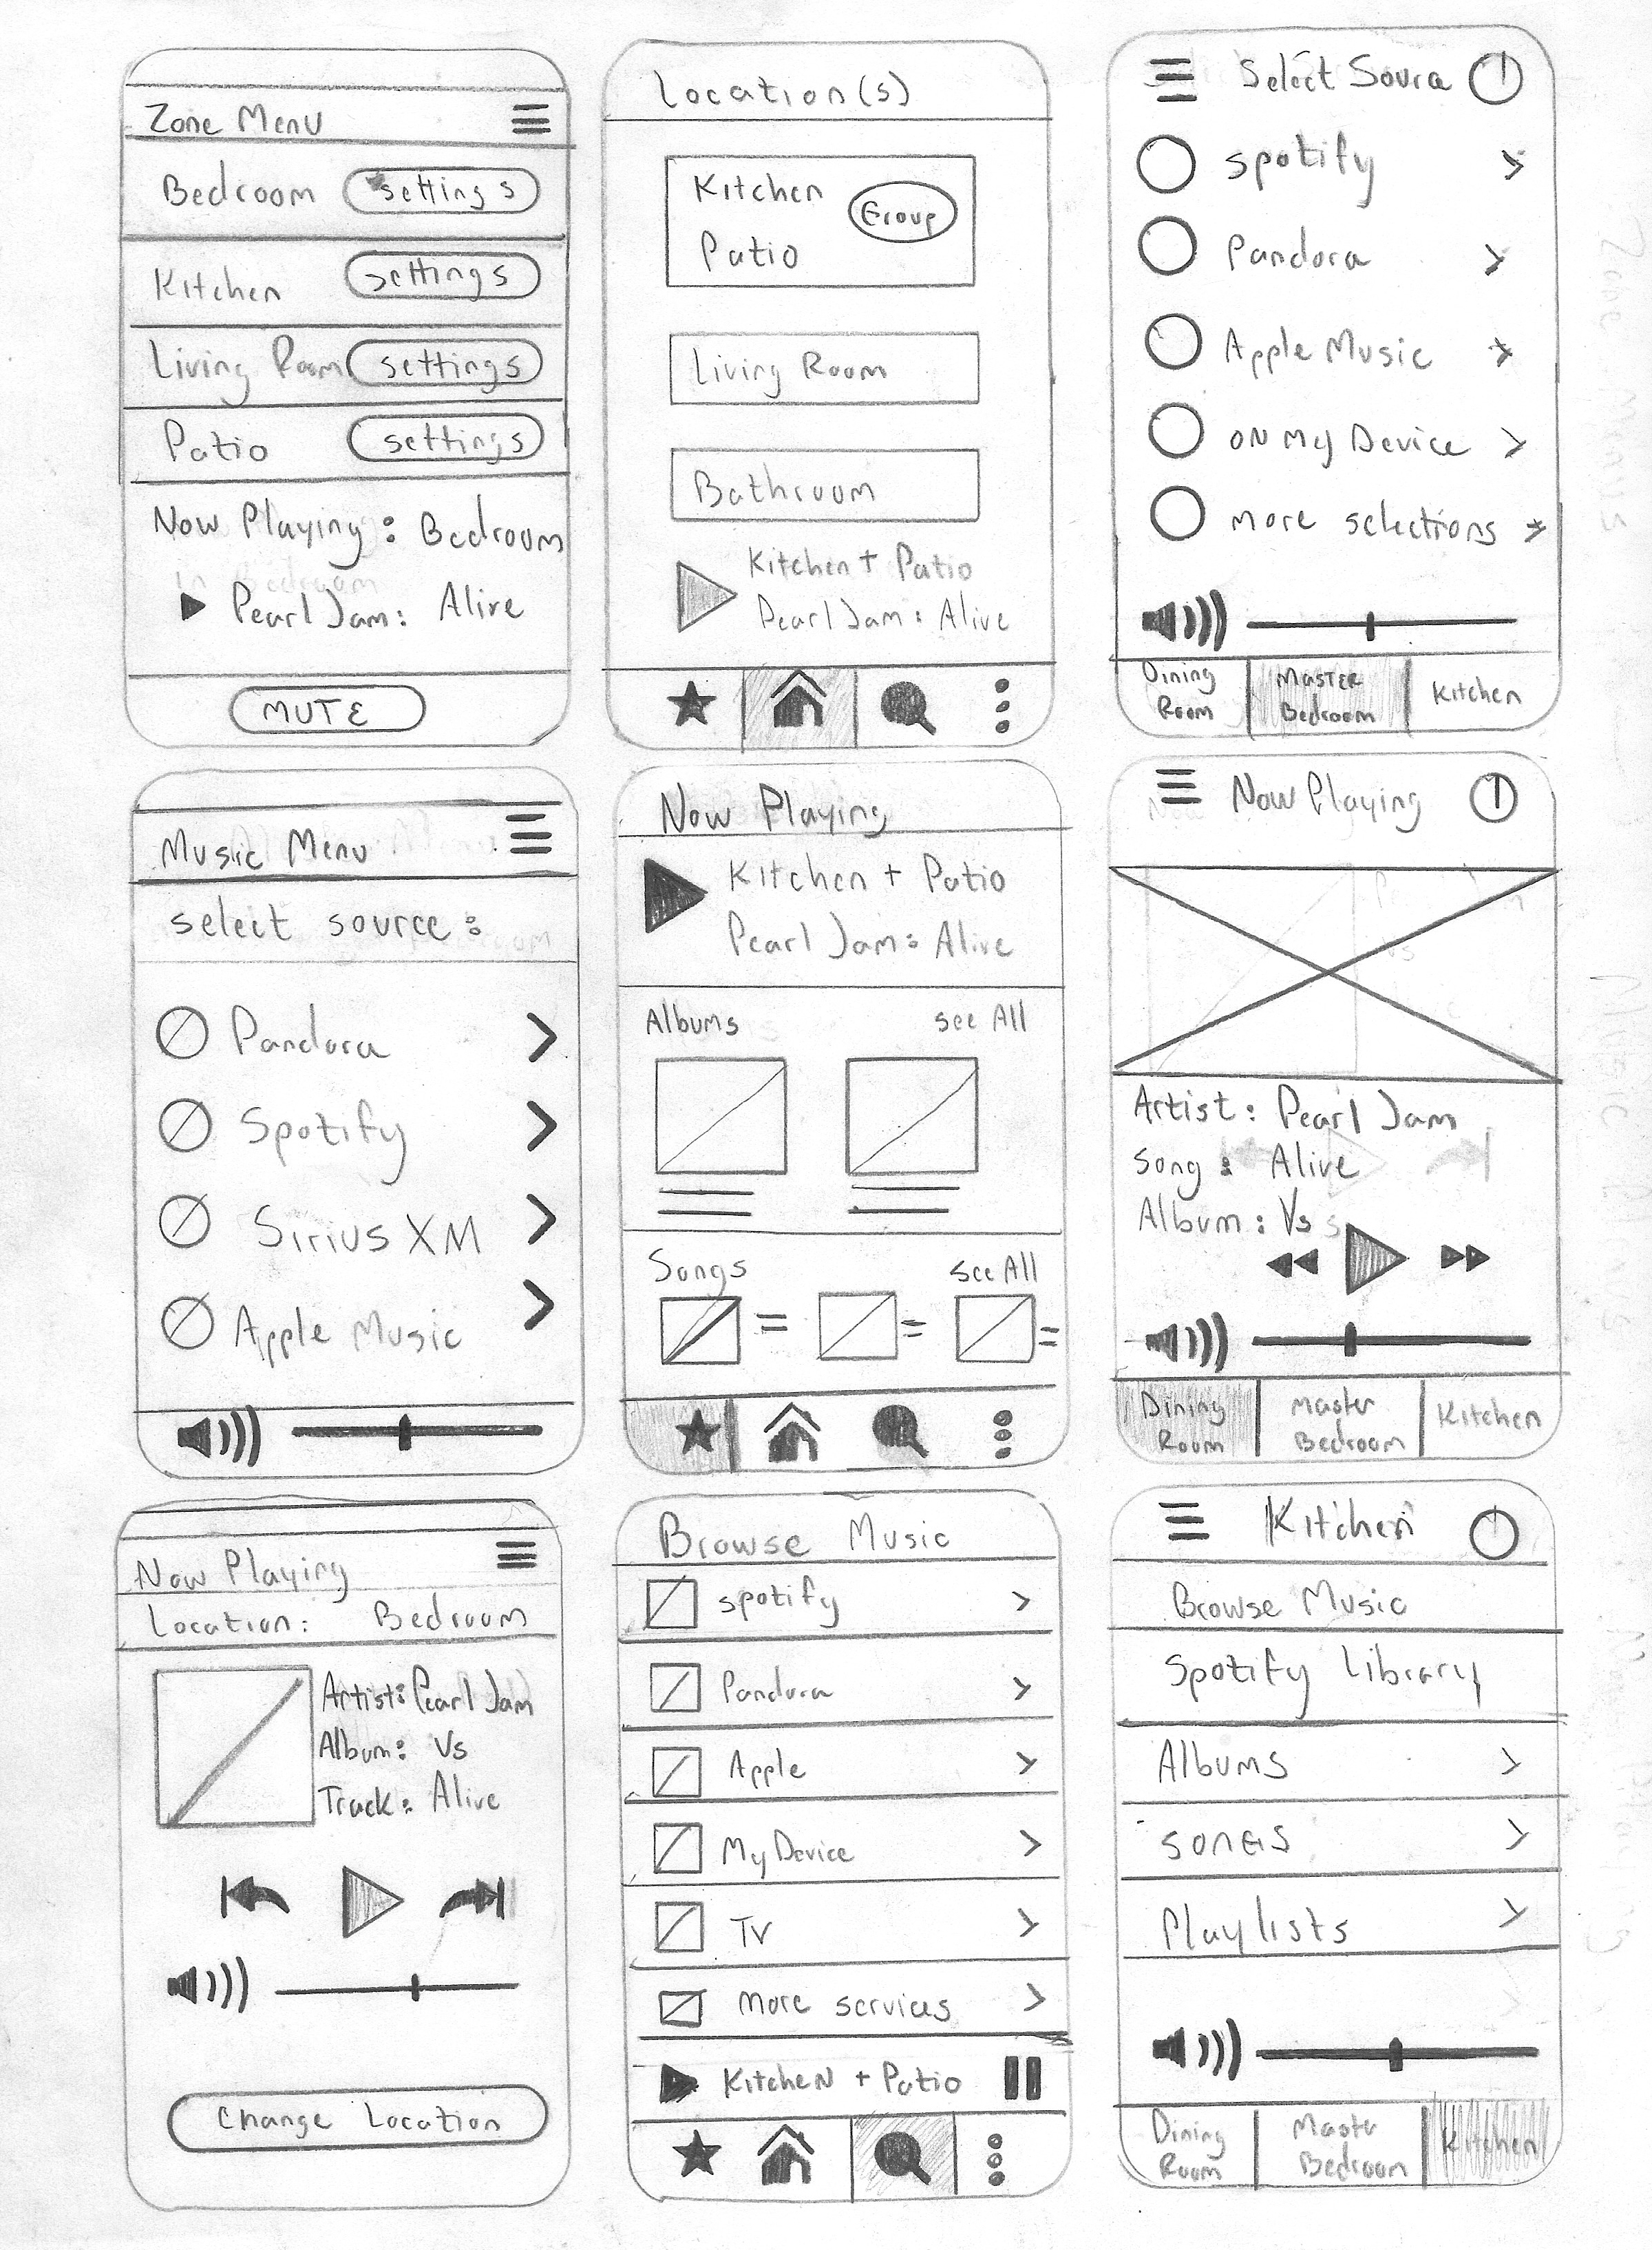 Zone Menu
Bedroom settings
Kitchen settings
Living Room settings
Patio settings
Now Playing : Bedroom
Pearl Jam: Alive
MUTE
Location(s)
Kitchen
Group
Patio
Living Room
Bathroom
Kitchen + Patio
Pearl Jam: Alive
Select Source
spotify >
Pandora >
Apple Music >
ON My Device >
more selections >
Dining Room
MASTER Bedroom
Kitchen
Music Menu
select source:
Pandora >
Spotify >
Sirius XM >
Apple Music >
Now Playing
Kitchen + Patio
Pearl Jam: Alive
Albums see All
Songs see All
Now Playing
Artist: Pearl Jam
Song: Alive
Album: Vs
Dining Room
Master Bedroom
Kitchen
Now Playing
Location: Bedroom
Artist: Pearl Jam
Album: Vs
Track: Alive
Change Location
Browse Music
spotify >
Pandora >
Apple >
My Device >
TV >
more services >
KitcheN + Patio
Kitchen
Browse Music
Spotify Library
Albums >
SONGS >
Playlists >
Dining Room
Master Bedroom
Kitchen